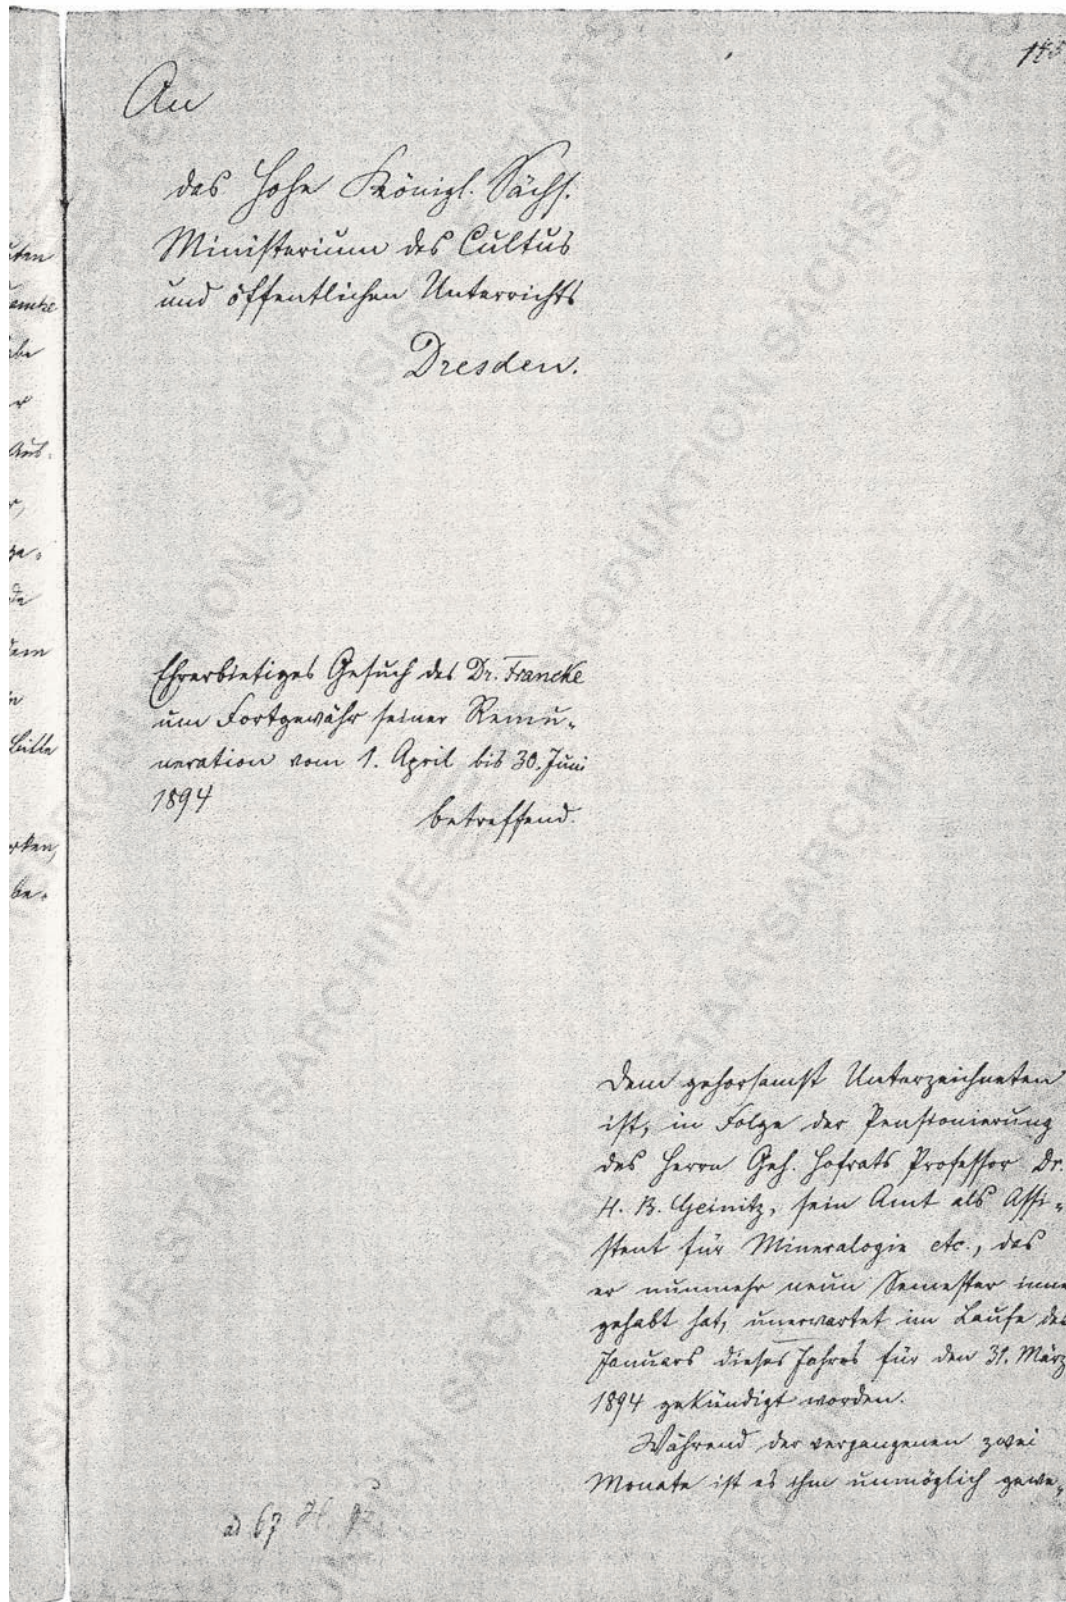 An
das hohe Königl. Sächs.
Ministerium des Cultus
und öffentlichen Unterrichts
Dresden.
Ehrerbietiges Gesuch des Dr. Francke
um Fortgewähr seiner Remu-
neration vom 1. April bis 30. Juni
1894
betreffend.
Dem gehorsamst Unterzeichneten
ist, in Folge der Pensionierung
des Herrn Geh. Hofrats Professor Dr.
H. B. Geinitz, sein Amt als Assi-
stent für Mineralogie etc., das
er nunmehr neun Semester inne
gehabt hat, unerwartet im Laufe des
Januars dieses Jahres für den 31. März
1894 gekündigt worden.
Während der vergangenen zwei
Monate ist es ihm unmöglich gewe-
ad 67